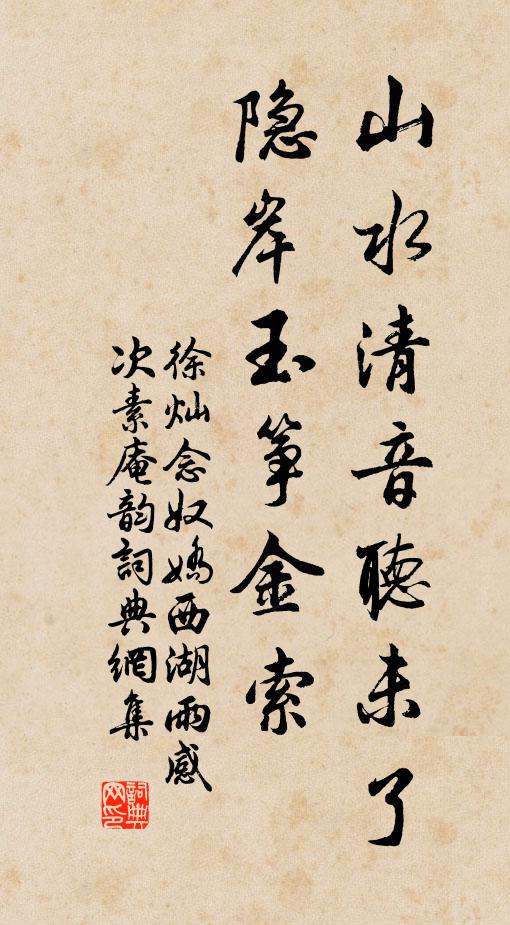 山水清音聽未了
隐岸玉筝金索
徐灿念奴嬌西湖雨感
次素庵韵詞典網集
詞典
网印